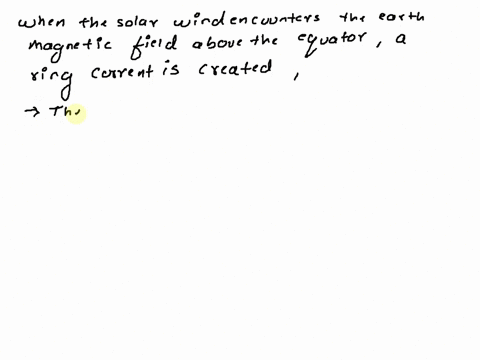 when the solar wind encounters the earth
magnetic field above the equator, a
ring current is created,
→ Th